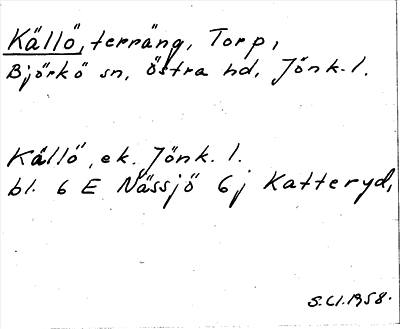 Källö, terräng, Torp,
Björkö sn, Östra hd, Jönk. l.
Källö, ek. Jönk. l.
bl. 6 E Nässjö 6 j Katteryd,
S.Cl.1958.